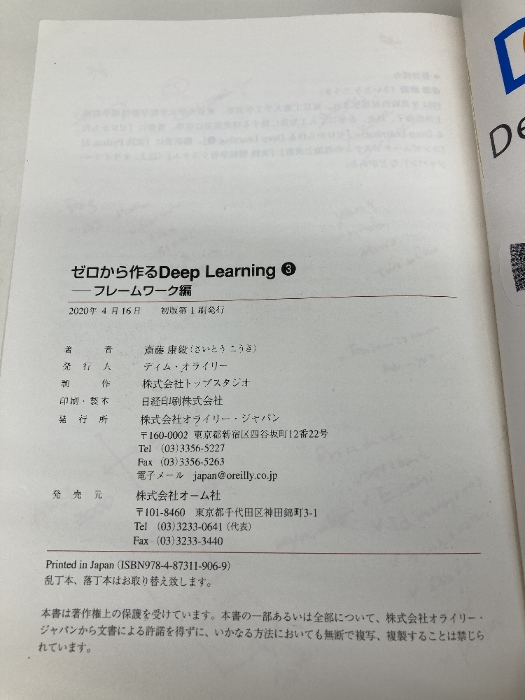 ゼロから作るDeep Learning ❸
――フレームワーク編
2020年 4 月 16日 初版第 1 刷発行
著 者 斎藤 康毅（さいとう こうき）
発 行 人 ティム・オライリー
制 作 株式会社トップスタジオ
印刷・製本 日経印刷株式会社
発 行 所 株式会社オライリー・ジャパン
〒160-0002 東京都新宿区四谷坂町12番22号
Tel (03)3356-5227
Fax (03)3356-5263
電子メール japan@oreilly.co.jp
発 売 元 株式会社オーム社
〒101-8460 東京都千代田区神田錦町3-1
Tel (03)3233-0641（代表）
Fax (03)3233-3440
Printed in Japan（ISBN978-4-87311-906-9）
乱丁本、落丁本はお取り替え致します。
本書は著作権上の保護を受けています。本書の一部あるいは全部について、株式会社オライリー・
ジャパンから文書による許諾を得ずに、いかなる方法においても無断で複写、複製することは禁じら
れています。
De